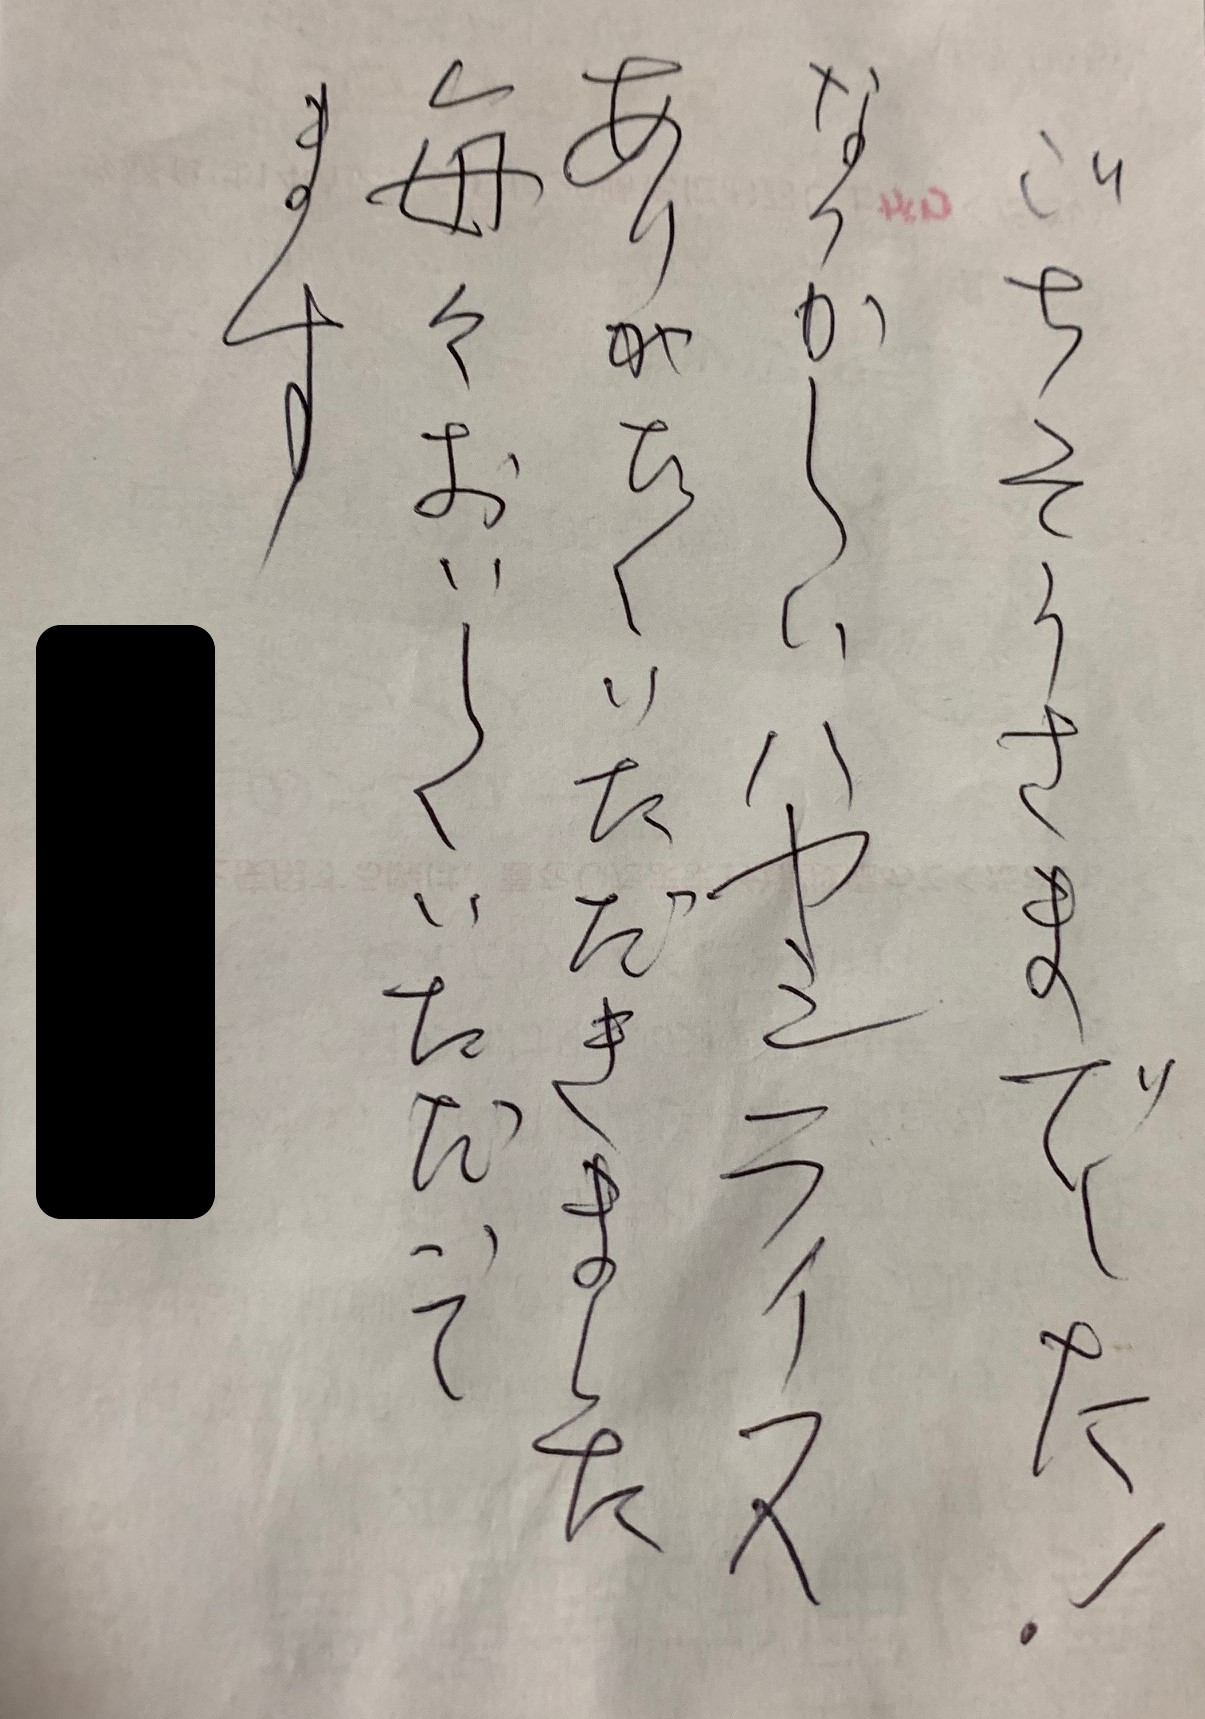 ごちそうさまでした!
なつかしい ハヤシライス
ありがたくいただきました
毎々おいしくいただいて
ます